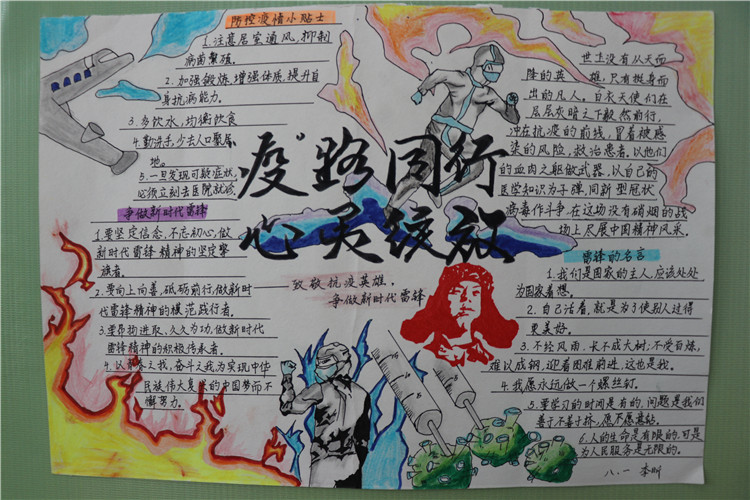 防控疫情小贴士
1.注意居室通风,抑制
病菌繁殖。
2.加强锻炼,增强体质,提升自
身抗病能力。
3.多饮水,均衡饮食
4.勤洗手,少去人口聚居
地。
5.一旦发现可疑症状,
必须立刻去医院就诊
争做新时代雷锋
1.要坚定信念,不忘初心,做
新时代雷锋精神的坚定擎
旗者。
2.要向上向善,砥砺前行,做新时
代雷锋精神的模范践行者。
3.要昂扬进取,久久为功,做新时代
雷锋精神的积极传承者。
4.以青春之我,奋斗之我,为实现中华
民族伟大复兴的中国梦而不
懈努力。
“疫”路同行
心灵绽放
致敬抗疫英雄,
争做新时代雷锋
世上没有从天而
降的英雄,只有挺身而
出的凡人。白衣天使们在
层层灰暗之下毅然前行,
冲在抗疫的前线,冒着被感
染的风险,救治患者,以他们
的血肉之躯做武器,以自己的
医学知识为子弹,同新型冠状
病毒作斗争,在这场没有硝烟的战
场上尽展中国精神风采。
雷锋的名言
1.我们是国家的主人,应该处处
为国家着想。
2.自己活着,就是为了使别人过得
更美好。
3.不经风雨,长不成大树;不受百炼,
难以成钢,迎着困难前进,这也是我。
4.我愿永远做一个螺丝钉。
5.要学习的时间是有的,问题是我们
善于不善于挤,愿不愿意钻。
6.人的生命是有限的,可是
为人民服务是无限的。
八.一 李昕